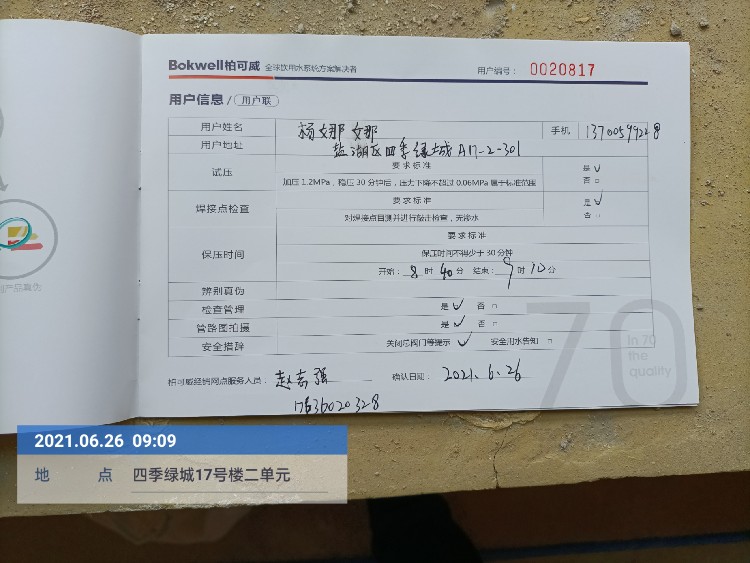 Bokwell柏可威 全球饮用水系统方案解决者 用户编号： 0020817
用户信息 / 用户联
用户姓名 杨文那 文那 手机
用户地址 盐湖区四季绿城A17-2-301
试压 要求标准 是 √
加压 1.2MPa，稳压 30 分钟后，压力下降不超过 0.06MPa 属于标准范围 否 □
焊接点检查 要求标准 是 √
对焊接点目测并进行敲击检查，无渗水 否 □
要求标准
保压时间 保压时间不得少于 30 分钟
开始： 8 时 40 分 结束： 9 时 10 分
辨别真伪
检查管理 是 √ 否 □
管路图拍摄 是 √ 否 □
安全措辞 关闭总阀门等提示 √ 安全用水告知 □
70
In 70
the
quality
柏可威经销网点服务人员： 赵志强 确认日期： 2021.6.26
2021.06.26 09:09
地 点 四季绿城17号楼二单元